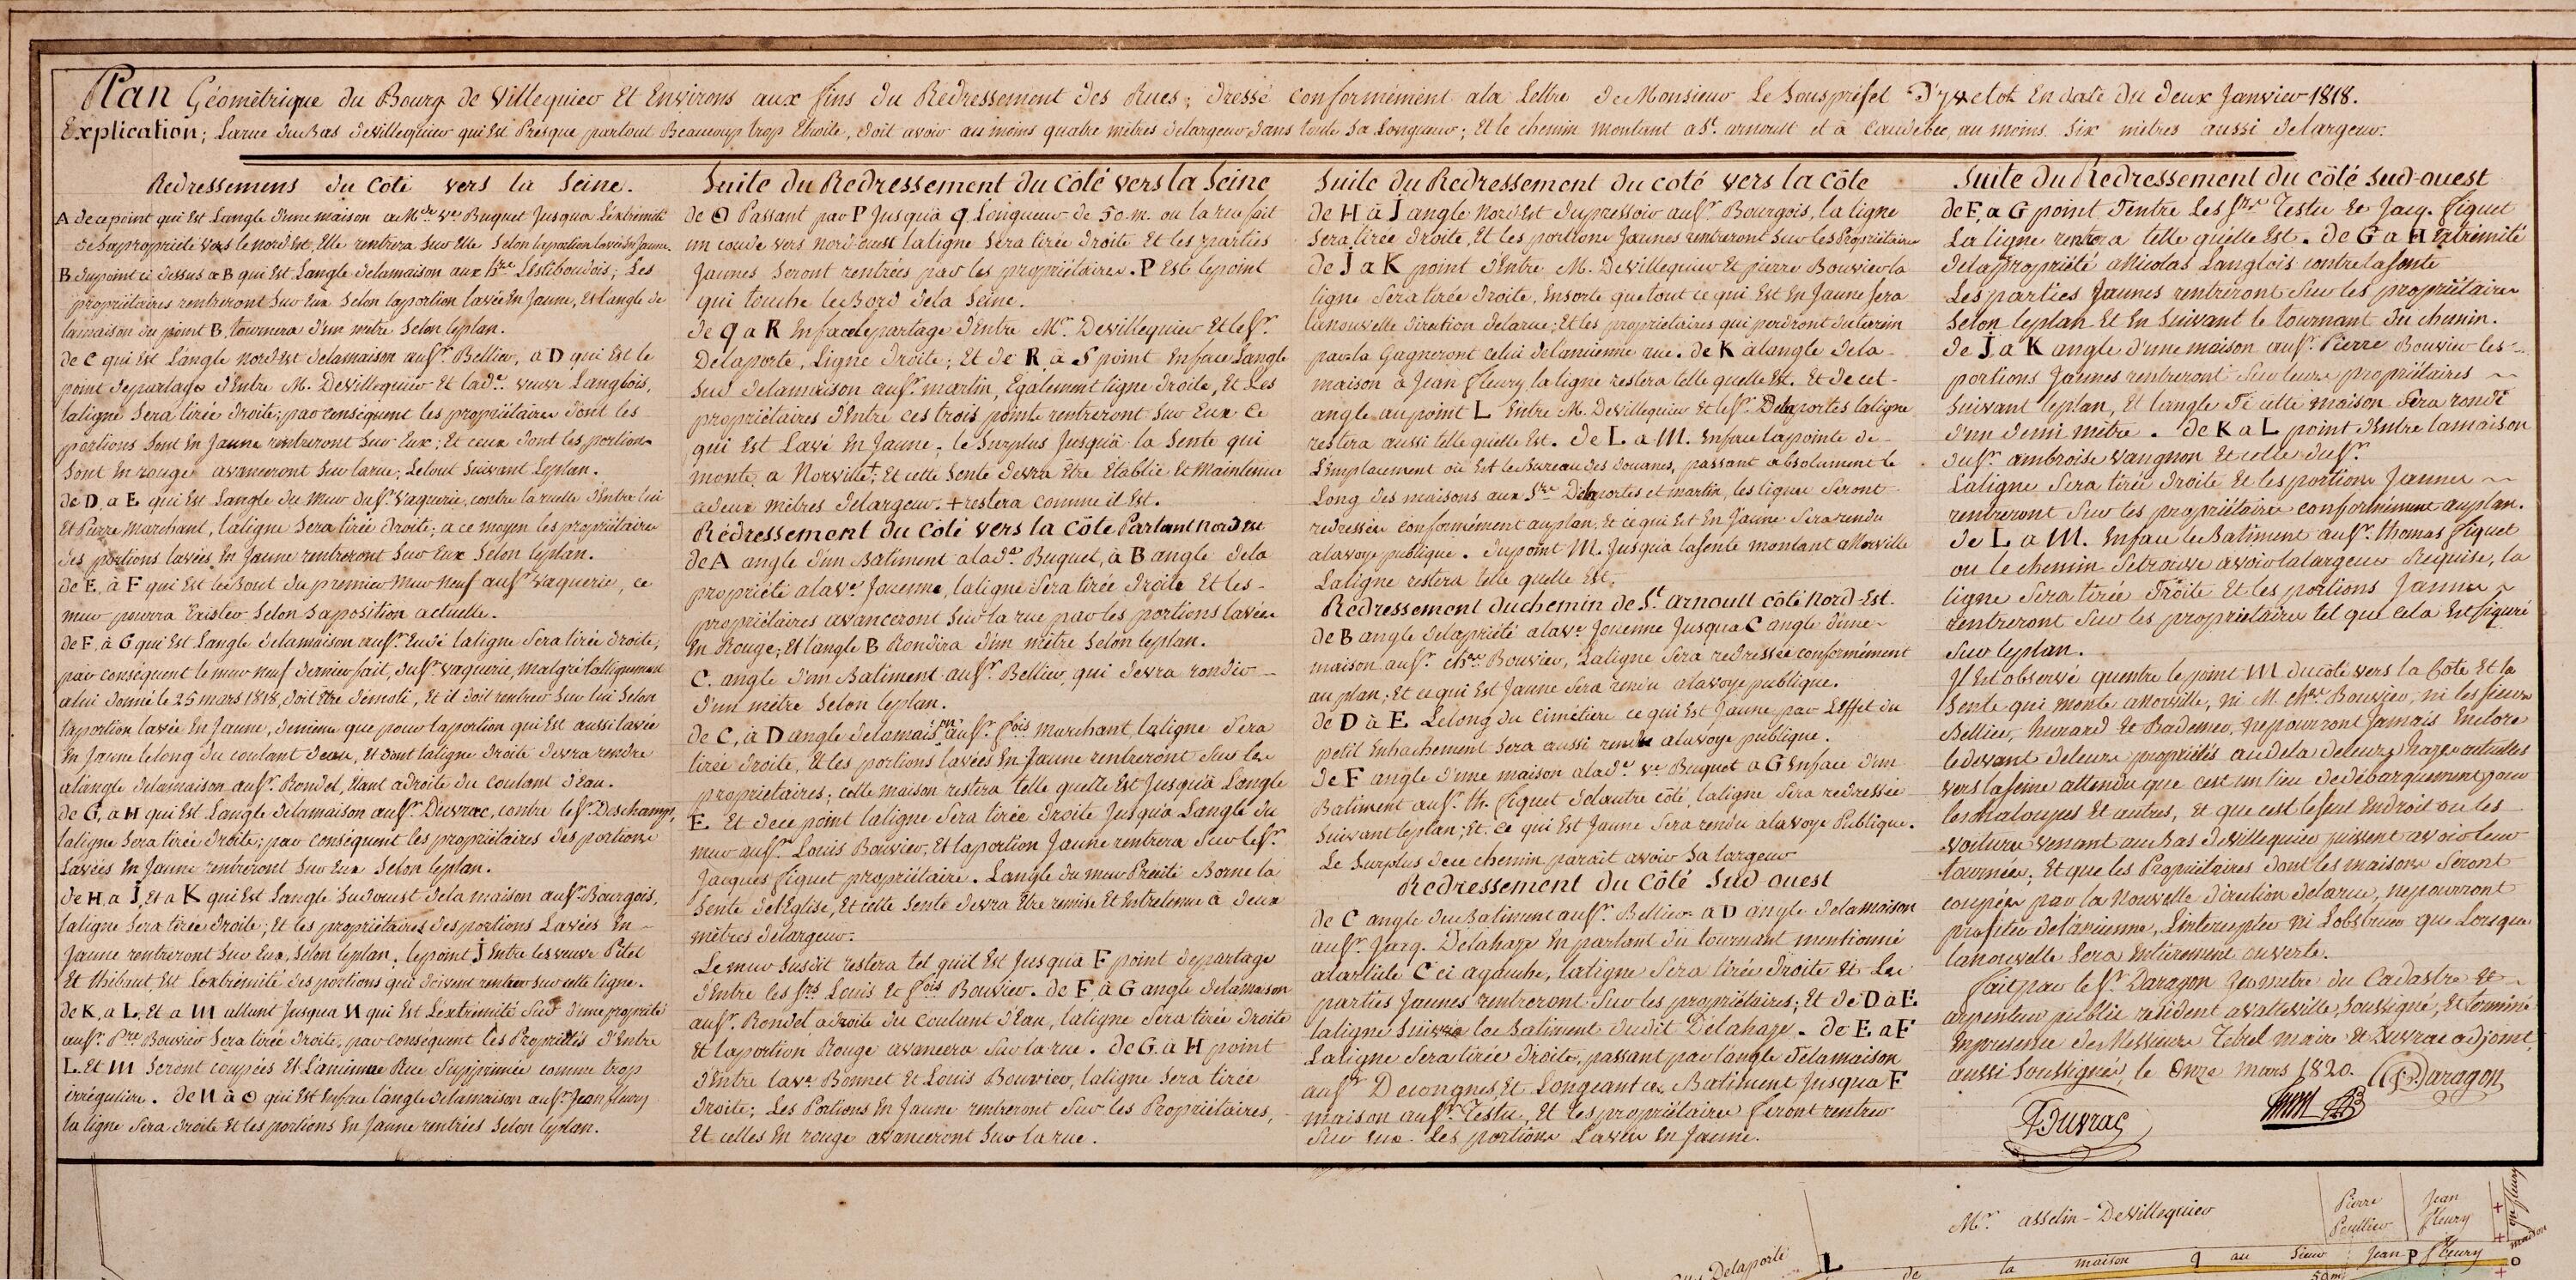 Plan Géométrique du Bourg de Villequier Et Environs aux fins du Redressement des Rues; dressé conformément ala Lettre de Monsieur Le Souspréfet d'yvetot En date du deux Janvier 1818.
Explication; Larue duBas deVillequier qui Est Presque partout Beaucoup trop Etroite, doit avoir au moins quatre mètres delargeur dans toute sa Longueur; Et le chemin montant a St. arnoult et à Caudebec, au moins six mètres aussi delargeur.
Redressemens du Coté vers la Seine.
A de cepoint qui Est Langle d'une maison a Mde. ve. Buquet Jusqua L'extrémité
de sa propriété vers le nord Est, Elle rentrera sur Elle selon laportion lavée En Jaune.
B dupoint ci dessus a B qui Est Langle delamaison aux hers. Lestiboudois; Les
propriétaires rentreront sur Eux selon laportion lavée En Jaune, Et langle de
lamaison du point B, tournera d'un metre selon leplan.
de C qui Est L'angle nord Est delamaison ausr. Bellier, a D qui Est le
point departage d'Entre M. DeVillequier Et lade. veuve Langlois,
laligne Sera tirée droite; par conséquent les propriétaires dont les
portions sont En Jaune rentreront sur Eux; Et ceux dont les portions
sont En rouge avanceront sur larue; Letout suivant Leplan.
de D a E qui Est Langle du mur dusr. Vaquerie, contre la ruelle d'Entre lui
Et Pierre Marchant, laligne Sera tirée droite; a ce moyen les propriétaires
des portions lavées En Jaune rentreront sur Eux selon leplan.
de E, à F qui Est le Bout du premier mur neuf ausr. Vaquerie, ce
mur pourra Exister selon Saposition actuelle.
de F, à G qui Est Langle delamaison ausr. Eudé laligne Sera tirée droite;
par conséquent le mur neuf dernier fait, dusr. vaquerie, malgré l'allignement
alui donné le 25 mars 1818, doit Etre démoli, Et il doit rentrer sur lui selon
laportion lavée En Jaune, demême que pour laportion qui Est aussi lavée
En Jaune lelong du coulant deau, Et dont laligne droite devra rendre
alangle delamaison ausr. Rondel, Etant adroite du coulant d'Eau.
de G, a H qui Est Langle delamaison ausr. Duvrac, contre lesr. Deschamps,
laligne sera tirée droite; par conséquent les propriétaires des portions
Lavées En Jaune rentreront sur Eux selon leplan.
de H a J, Et a K qui Est Langle Sudouest dela maison ausr. Bourgois,
laligne sera tirée droite; Et les propriétaires des portions Lavées En
Jaune rentreront sur Eux, selon leplan. lepoint J Entre les veuve Pitel
Et thibaut, Est Lextrémité des portions qui doivent rentrer sur cette ligne.
de K, a L, Et a M allant Jusqua N qui Est Lextrémité Sud d'une propriété
ausr. Pre. Bouvier Sera tirée droite, par conséquent Les Propriétés d'Entre
L. Et M Seront coupées Et Lancienne Rue Supprimée comme trop
irrégulière. de N à O qui Est Enface l'angle delamaison ausr. Jean fleury
la ligne Sera droite Et les portions En Jaune rentrées selon leplan.
Suite du Redressement du Côté vers la Seine
de O Passant par P Jusquà q. Longueur de 50. m. ou larue fait
un coude vers nord-ouest laligne Sera tirée droite Et les parties
Jaunes Seront rentrées par les propriétaires. P Est lepoint
qui touche leBord dela Seine.
de q a R Enface lepartage d'Entre Mr. Devillequier Et lesr.
Delaporte, Ligne droite; Et de R, à S point Enface Langle
Sud delamaison ausr. martin, Egalement ligne droite, Et Les
propriétaires d'Entre ces trois points rentreront sur Eux ce
qui Est Lavé En Jaune; le Surplus Jusquà la Sente qui
monte a Norville+; Et cette Sente devra Etre Etablie Et Maintenue
adeux mètres delargeur. + restera comme il Est.
Rédressement du Coté vers la Côte Partant nord Est
de A angle d'un Batiment alade. Buquet, à B angle dela
propriété alave. Jouenne, laligne Sera tirée droite Et les
propriétaires avanceront sur la rue par les portions lavées
En Rouge; Et langle B Rondira d'un mètre selon leplan.
C. angle d'un Batiment ausr. Bellier, qui devra rondir
d'un mètre selon leplan.
de C, à D angle delamaison ausr. fois. marchant, laligne Sera
tirée droite, Et les portions lavées En Jaune rentreront sur les
propriétaires; cette maison restera telle quelle Est Jusquà Langle
E Et de ce point laligne Sera tirée droite Jusquà Langle du
mur ausr. Louis Bouvier, Et laportion Jaune rentrera sur lesr.
Jacques figuet propriétaire. Langle du mur Précité Borne la
Sente delEglise, Et cette Sente devra Etre remise Et Entretenue à deux
mètres delargeur.
Le mur susdit restera tel quil Est Jusquà F point departage
d'Entre les srs Louis Et fois Bouvier. de F, à G angle delamaison
ausr. Rondel, adroite du Coulant d'Eau, laligne Sera tirée droite
Et laportion Rouge avancera sur larue. de G. à H point
d'Entre lave. Bonnet Et Louis Bouvier, laligne Sera tirée
droite; Les Portions En Jaune rentreront sur les Propriétaires,
Et celles En rouge avanceront sur la rue.
Suite du Redressement du coté vers la Côte
de H à J angle Nord Est dupressoir ausr. Bourgois, la ligne
Sera tirée droite, Et les portions Jaunes rentreront sur les Propriétaires
de J a K point d'Entre M. DeVillequier Et pierre Bouvier la
ligne Sera tirée droite, Ensorte quetout ce qui Est En Jaune Sera
lanouvelle direction delarue; Et les propriétaires qui perdront duterrein
parla Gagneront celui delancienne rue. de K a langle dela
maison à Jean fleury, la ligne restera telle quelle Est. Et de cet
angle aupoint L Entre M. DeVillequier Et lesr. Delaportes laligne
restera aussi telle quelle Est. de L a M. Enface lapointe de
L'Emplacement où Est le Bureau des Douanes, passant absolument le
Long des maisons aux Srs Delaportes et martin, les lignes Seront
redressées conformément auplan, Et ce qui Est En Jaune Sera rendu
alavoye publique. dupoint M. Jusquà lasente montant a Norville
Laligne restera telle quelle Est.
Redressement duchemin de St. Arnoult côté Nord-Est.
de B angle delapriété alave. Jouenne Jusqua C angle d'une
maison ausr. cher. Bouvier, Laligne Sera redressée conformément
au plan, Et ce qui Est Jaune Sera rendu alavoye publique.
de D à E Lelong du Cimétiere ce qui Est Jaune par Leffet du
petit Enhachement Sera aussi rendu alavoye publique.
de F angle d'une maison alade. ve Buquet a G Enface d'un
Batiment ausr. th. figuet delautre côté, laligne Sera redressée
suivant leplan; Et. ce qui Est Jaune Sera rendu alavoye Publique.
Le Surplus dece chemin parait avoir Sa largeur
Redressement du Côté Sud ouest
de C angle duBatiment ausr. Bellier a D angle delamaison
ausr. Jacq. Delahaye En partant du tournant mentionné
alarticle C ci agauche, laligne Sera tirée droite Et Les
parties Jaunes rentreront sur les propriétaires; Et de D à E
laligne suivra le Batiment dudit Delahaye. de E. a F
Laligne Sera tirée droite, passant par langle delamaison
ausr Decongnes, Et Longeant ce Batiment Jusqua F
maison ausr. Testu, Et les propriétaires feront rentrer
sur eux Les portions Lavées En Jaune.
Suite du Redressement du côté Sud-ouest
de F, a G point d'entre Les Srs Testu Et Jacq. figuet
La ligne rentrera telle quelle Est. de G a H Extrémité
delapropriété aNicolas Langlois contre lasente
Les parties Jaunes rentreront sur les propriétaires
selon leplan Et En suivant le tournant du chemin.
de J. a K angle d'une maison ausr. Pierre Bouvier les
portions Jaunes rentreront sur leurs propriétaires
suivant leplan, Et langle de cette maison Sera rondi
d'un demi mètre. de K a L point d'Entre lamaison
dusr. ambroise Vangnon Et celle dusr.
Laligne Sera tirée droite Et les portions Jaunes
rentreront sur les propriétaires conformément auplan.
de L a M. Enface le Batiment ausr. thomas figuet
ou le chemin setrouve avoir lalargeur Requise, la
ligne Sera tirée droite Et les portions Jaunes
rentreront sur les propriétaires tel que cela Est figuré
sur leplan.
Il Est observé quentre le point M du côté vers la Côte Et la
sente qui monte aNorville, ni M. cher Bouvier, ni les sieurs
Bellier, hurard Et Bademer, nepourront Jamais Enclore
ledevant deleurs propriétés audela deleurs hayes actuelles
vers laseine attendu que cest un lieu dedébarquement pour
les chaloupes Et autres, et que cest leseul Endroit ou les
voitures venant au Bas deVillequier puissent avoir leur
tournée; Et que les Propriétaires dont les maisons Seront
coupées par la Nouvelle direction delarue, nepourront
profiter delancienne, L'interrupter ni L'obstruer que Lorsque
lanouvelle Sera Entierement ouverte.
fait par le Sr. Daragon Geometre du Cadastre Et
arpenteur public résident aVatteville, soussigné, Et terminé
Enpresence de Messieurs Tebel maire Et Duvrac adjoint,
aussi Soussignés, le Onze mars 1820.
Daragon
Duvrac
Mr. asselin-DeVillequier
Pierre
Jean
fleury
Delaporte
L
de la maison q au Sieur Jean P fleury
50 m
maison